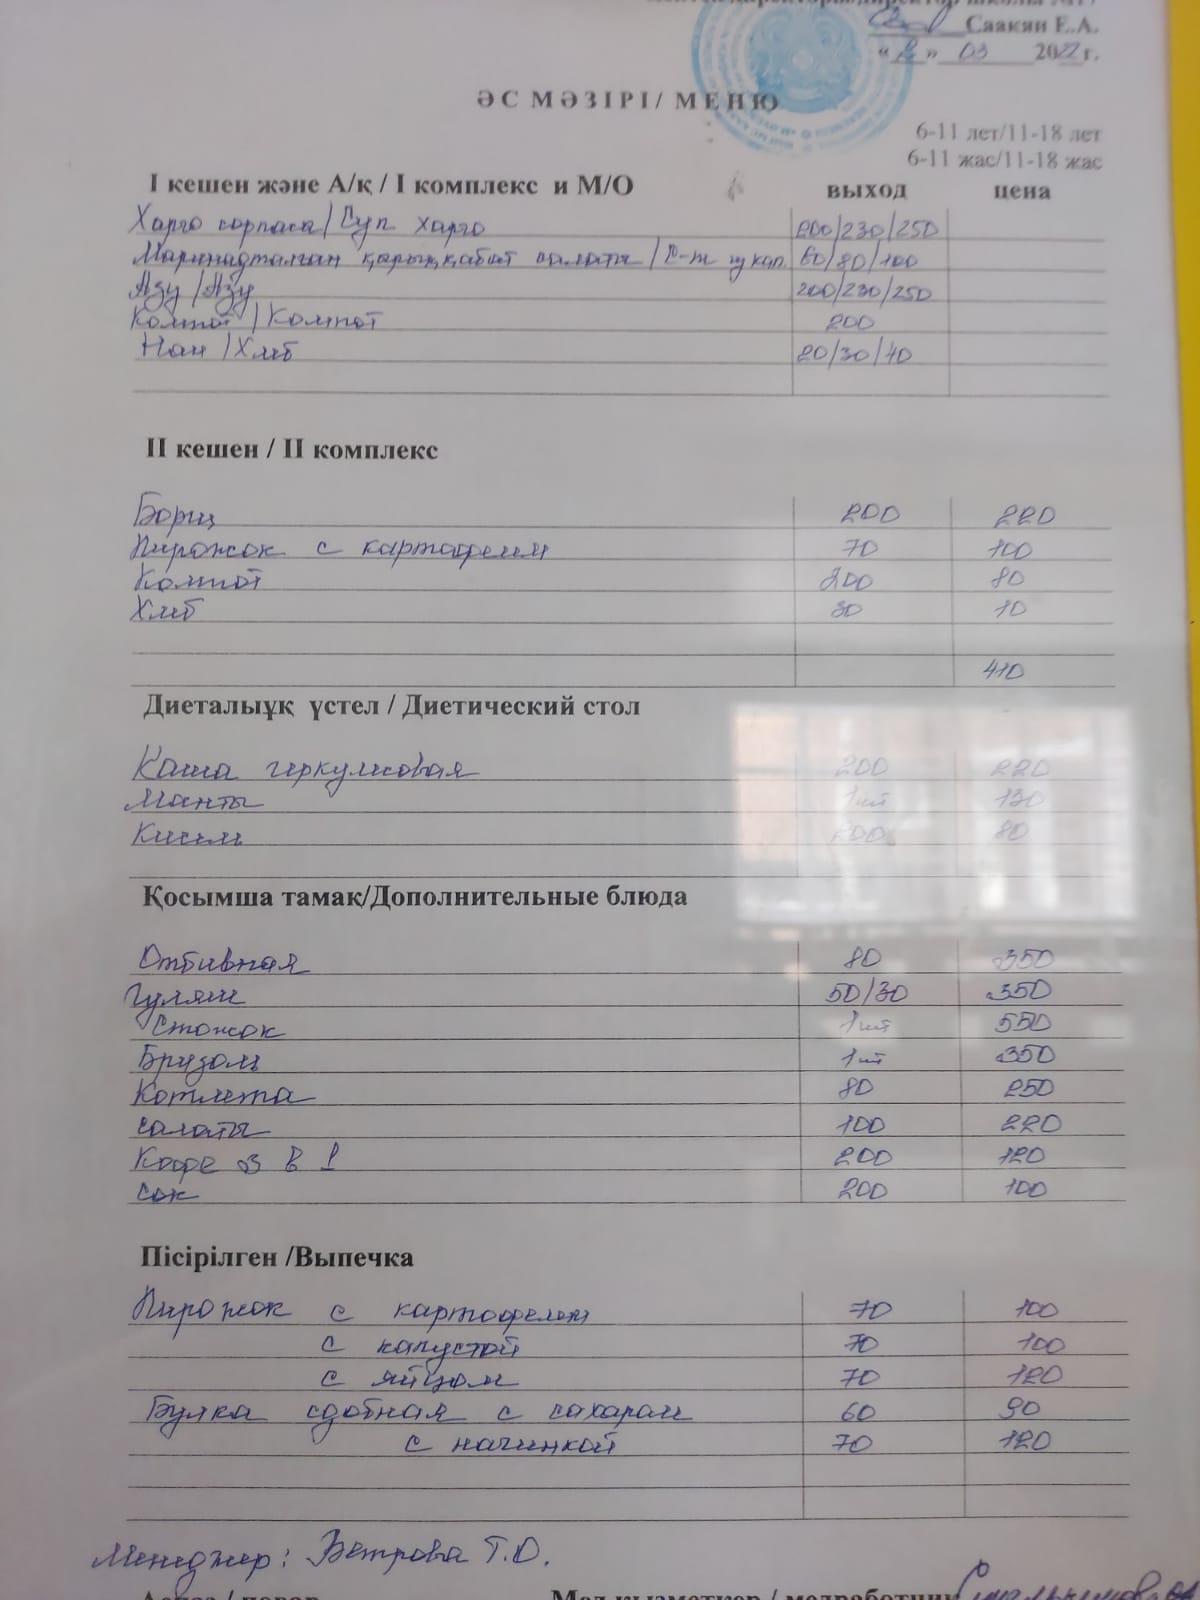 Саакян Е.А.
« » 03 2022 г.
ӘС МӘЗІРІ / МЕНЮ
6-11 лет/11-18 лет
6-11 жас/11-18 жас
I кешен және А/қ / I комплекс и М/О выход цена
Харчо сорпасы/Суп харчо 200/230/250
Маринадталған қырыққабат салаты/С-т из кап. 60/80/100
Азу/Азу 200/230/250
Компот/Компот 200
Нан/Хлеб 20/30/40
II кешен / II комплекс
Борщ 200 220
Пирожок с картофелем 70 100
Компот 200 80
Хлеб 30 10
410
Диеталыұқ үстел / Диетический стол
Каша геркулесовая 200 220
Манты 1 шт 130
Кисель 200 80
Қосымша тамак/Дополнительные блюда
Отбивная 80 350
Гуляш 50/30 350
Стожок 1 шт 550
Бризоль 1 шт 350
Котлета 80 250
Салаты 100 220
Кофе 3 в 1 200 120
Сок 200 100
Пісірілген /Выпечка
Пирожок с картофелем 70 100
с капустой 70 100
с яйцом 70 120
Булка сдобная с сахаром 60 90
с начинкой 70 120
Менеджер: Ветрова Т.О.
Аспаз / повар Мед қызметкер / медработник